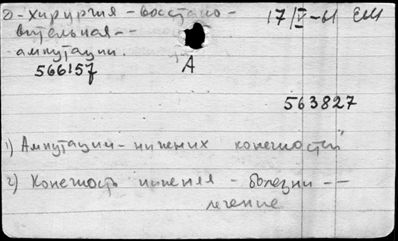 д-хирургия - восстано- 17/V-61 ЕМ
вительная --
ампутации.
566157 А
563827
1) Ампутации - нижних конечностей
2) Конечность нижняя - болезни --
лечение